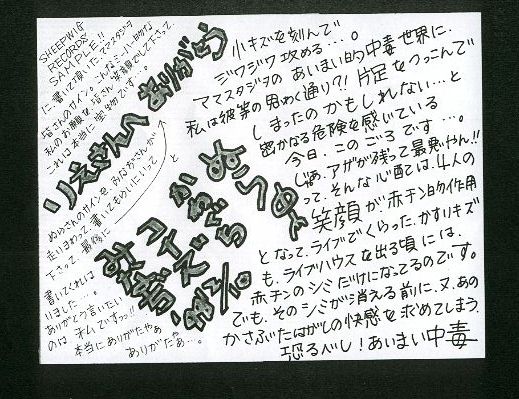 小キズを刻んで
ジワジワ攻める…。
ママスタジヲのあいまい的中毒世界に.
私は彼等の思わく通り?!片足をつっこんで
しまったのかもしれない…と
密かなる危険を感じている
今日.このごろです…。
じゃあ.アザが残って最悪やん!!
って.そんな心配は.4人の
笑顔が赤チン的作用
となって.ライブでくらった.かすりキズ
も.ライブハウスを出る頃には.
赤チンのシミだけになってるのです。
でも.そのシミが消える前に.又.あの
かさぶたはがしの快感を求めてしまう.
恐るべし!あいまい中毒
SHEEPWING
RECORDS
SAMPLE!!
に書いて頂いたママスタジヲ
皆さんのサイン。こんなミーハー的な
私のお願いを皆さん笑顔でして下さって.
これは本当に宝物です…。
りえさんへ ありがとう
皆さんのサインを.
走りまわって.書いてもらいにいって
下さって.最後に
書いてくれは
りました…。
ありがとう言いたい
のは.私ですっっ!!
本当にありがたやぁ
ありがたぁ〜。